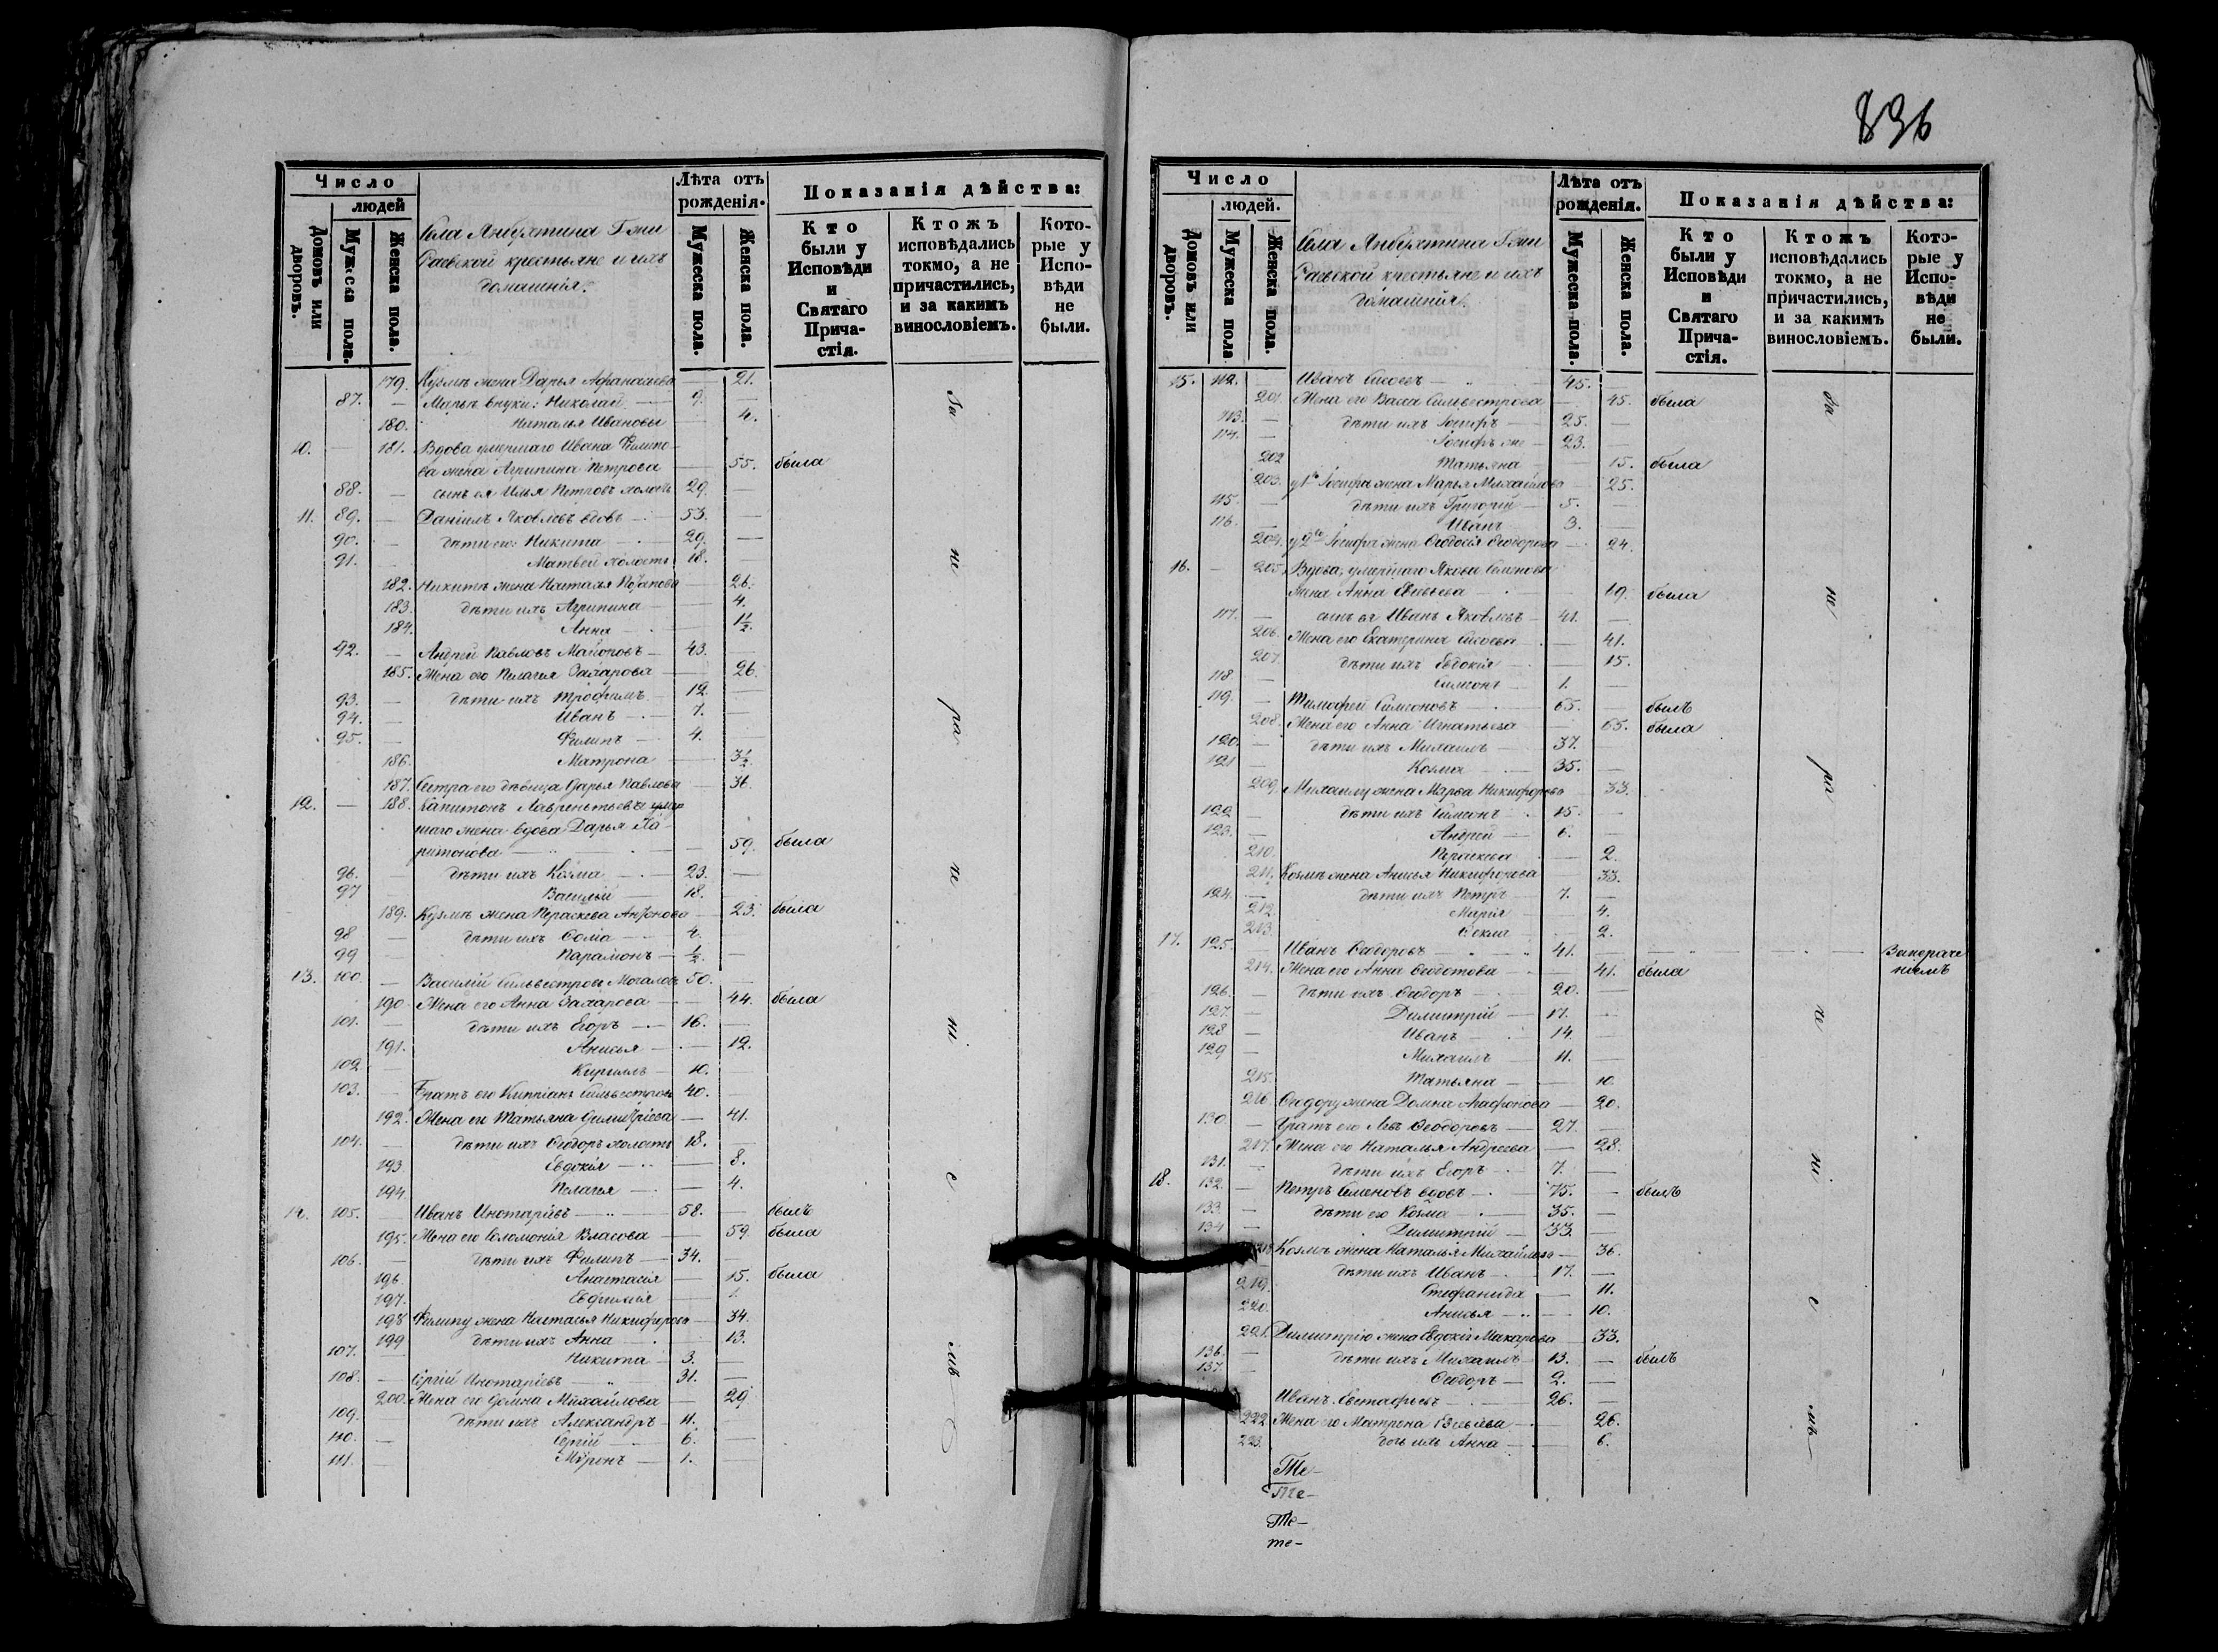 836
Число
людей
Домовъ или дворовъ.
Мужеска пола.
Женска пола.
Села Янбухтина Г-жи
Раевской крестьяне и ихъ
домашнія.
Лѣта отъ рожденія.
Мужеска пола.
Женска пола.
Показанія дѣйства:
Кто были у Исповѣди и Святаго Прича-стія.
Ктожъ исповѣдались токмо, а не причастились, и за какимъ винословіемъ.
Кото-рые у Испо-вѣди не были.
179. Кузмѣ жена Дарья Афанасьева — 21.
87. — Марьѣ внуки: Николай — 9. —
180. Наталья Ивановы — 4.
10. — 181. Вдова умершаго Ивана
ва жена Агрипина Петрова — 55. была
88. — сынъ ея Илья Петровъ холостъ 29. —
11. 89. — Даніилъ Яковлевъ вдовъ — 53. —
90. — дѣти его: Никита — 29. —
91. — Матвей холостъ 18. —
182. Никитѣ жена Наталья Потапова — 26.
183. дѣти ихъ Агрипина — 4.
184. Анна — 1½.
92. — Андрей Павловъ Майоровъ — 43. —
185. Жена его Пелагея Захарова — 26.
93. — дѣти ихъ Трофимъ — 12. —
94. — Иванъ — 7. —
95. — Филипъ — 4. —
186. Матрона — 3½.
187. Сестра его дѣвица Дарья Павлова — 36.
12. — 188. Капитонъ Лаврентьева умер
шаго жена вдова Дарья Ха-
ритонова — 59. была
96. — дѣти ихъ Козма — 23. —
97 Василій — 18. —
189. Кузмѣ жена Параскева Антонова — 23. была
98 — дѣти ихъ — 4. —
99 — Парамонъ — ½. —
13. 100. — Василій Сильвестровъ Мочаловъ 50. —
190. Жена его Анна Захарова — 44. была
101. — дѣти ихъ Егоръ — 16. —
191. Анисья — 12.
102 — Кириллъ — 10. —
103. — Братъ его Кипріанъ Сильвестровъ 40. —
192. Жена его Татьяна Димитріева — 41.
104. — дѣти ихъ Ѳеодоръ холостъ 18. —
193. Евдокія — 8.
194. Пелагея — 4.
14. 105. — Иванъ — 58. — былъ
195. Жена его Соломонія Власова — 59. была
106. — дѣти ихъ Филипъ — 34. —
196. Анастасія — 15. была
197. Евфимія —
198 Филипу жена Настасья Никифорова — 34.
199 дѣти ихъ Анна — 13.
107. — Никита — 3. —
108. — Сергій — 31. —
200. Жена его Домна Михайлова — 29
109. дѣти ихъ Александръ — 11. —
110. — Сергій — 6. —
111. — Миронъ — 1. —
За не ра че ні е мъ
Число
людей.
Домовъ или дворовъ.
Мужеска пола
Женска пола.
Села Янбухтина Г-жи
Раевской крестьяне и ихъ
домашнія.
Лѣта отъ рожденія.
Мужеска пола.
Женска пола.
Показанія дѣйства:
Кто были у Исповѣди и Святаго Прича-стія.
Ктожъ исповѣдались токмо, а не причастились, и за какимъ винословіемъ.
Кото-рые у Испо-вѣди не были.
15. 112. — Иванъ Сысоевъ — 45. —
201. Жена его Васса Сильвестрова — 45. была
113. — дѣти ихъ Іосифъ — 25. —
114. — Іосифъ же — 23. —
202 Татьяна — 15. была
203. у 1го Іосифа жена Марья Михайлова — 25.
115. — дѣти ихъ Григорій — 5. —
116. — Иванъ — 3. —
204. у 2го Іосифа жена Ѳеодосія Ѳеодорова — 24.
16. — 205. Вдова, умершаго Якова Семенова
жена Анна — 69. была
117. — сынъ ея Иванъ Яковлевъ — 41. —
206. Жена его Екатерина Сысоева — 41.
207. дѣти ихъ Евдокія — 15.
118 — Симеонъ — 1. —
119. — Тимофей Симеоновъ — 65. — былъ
208. Жена его Анна Игнатьева — 65. была
120. — дѣти ихъ Михаилъ — 37. —
121 — Козма — 35. —
209. Михаилу жена Марѳа Никифорова — 33.
122 — дѣти ихъ Симеонъ — 15. —
123. — Андрей — 6. —
210. Параскева — 2.
211. Козмѣ жена Анисья Никифорова — 33.
124. — дѣти ихъ Петръ — 7. —
212. Марія — 4.
213. Ѳекла — 2.
17. 125. — Иванъ Ѳеодоровъ — 41. — Занераче
ніемъ
214. Жена его Анна Ѳеодотова — 41. была
126. — дѣти ихъ Ѳеодоръ — 20. —
127. — Димитрій — 17. —
128 — Иванъ — 14. —
129 — Михаилъ — 11. —
215. Татьяна — 10.
216. Ѳеодору жена Домна Агафонова — 20.
130. — Братъ его Левъ Ѳеодоровъ — 27. —
217. Жена его Наталья Андреева — 28.
131. — дѣти ихъ Егоръ — 7. —
18. 132. — Петръ Семеновъ вдовъ — 75. — былъ
133. — дѣти его Козма — 35. —
134 — Димитрій — 33. —
218. Козмѣ жена Наталья Михайлова — 36.
дѣти ихъ Иванъ — 17. —
219. Стефанида — 11.
220. Анисья — 10.
221. Димитрію жена Евдокія Макарова — 33.
136. — дѣти ихъ Михаилъ — 13. — былъ
137. — Ѳеодоръ — 2. —
Иванъ Евстафьевъ — 26. —
222 Жена его Матрона — 26.
223. дочь ихъ Анна — 6.
За не ра че ні е мъ
Те-
Те-
Те-
те-